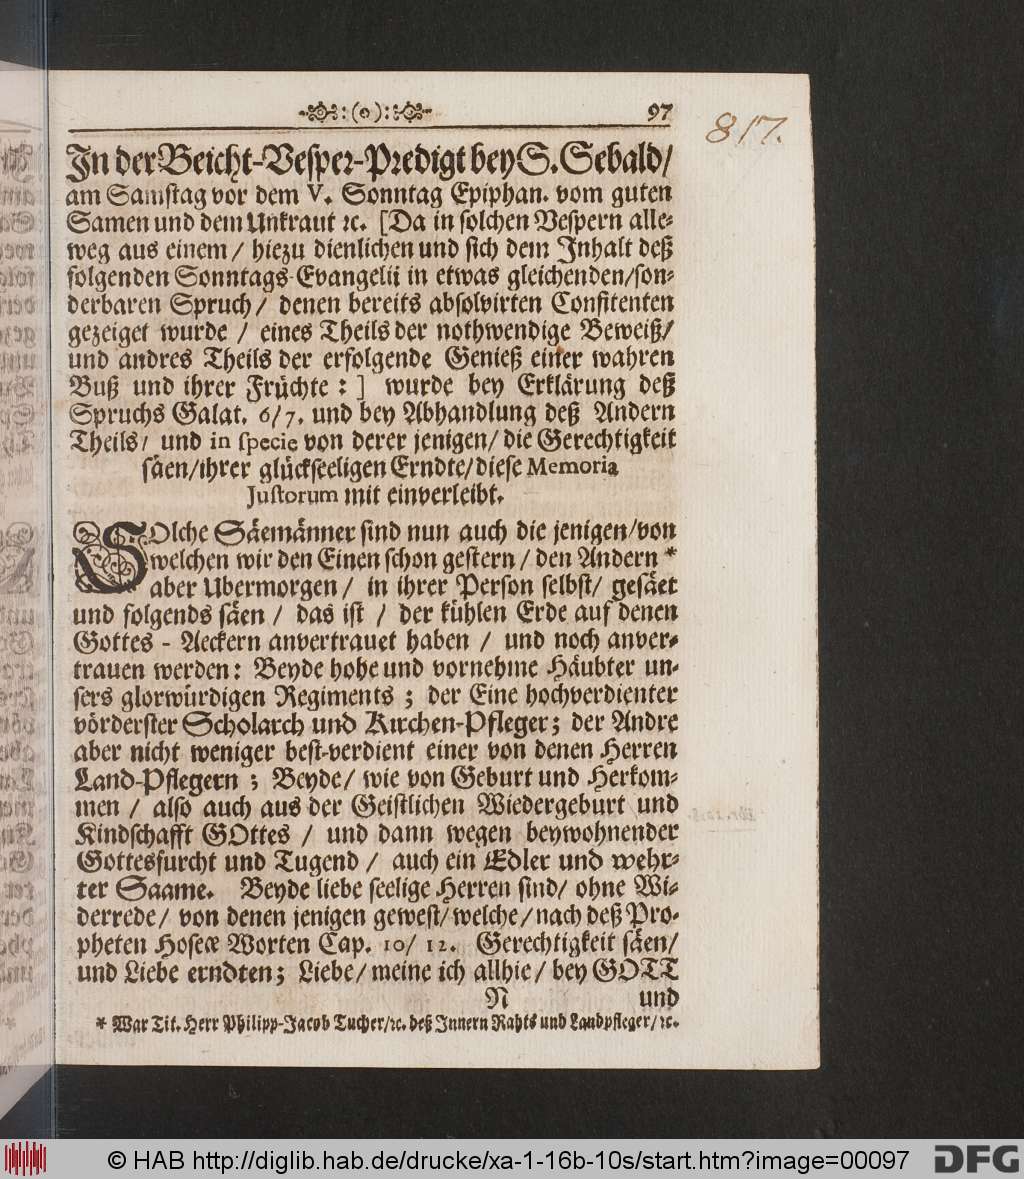 :(o): 97
817.
In der Beicht-Vesper-Predigt bey S. Sebald/
am Samstag vor dem V. Sonntag Epiphan. vom guten
Samen und dem Unkraut ꝛc. [Da in solchen Vespern alle-
weg aus einem/ hiezu dienlichen und sich dem Inhalt deß
folgenden Sonntags-Evangelii in etwas gleichenden/son-
derbaren Spruch/ denen bereits absolvirten Confitenten
gezeiget wurde / eines Theils der nothwendige Beweiß/
und andres Theils der erfolgende Genieß einer wahren
Buß und ihrer Früchte: ] wurde bey Erklärung deß
Spruchs Galat. 6/7. und bey Abhandlung deß Andern
Theils/ und in specie von derer jenigen/ die Gerechtigkeit
säen/ihrer glückseeligen Erndte/diese Memoria
Justorum mit einverleibt.
SOlche Säemänner sind nun auch die jenigen/von
welchen wir den Einen schon gestern / den Andern *
aber Ubermorgen / in ihrer Person selbst/ gesäet
und folgends säen / das ist / der kühlen Erde auf denen
Gottes - Aeckern anvertrauet haben / und noch anver-
trauen werden: Beyde hohe und vornehme Häubter un-
sers glorwürdigen Regiments ; der Eine hochverdienter
vörderster Scholarch und Kirchen-Pfleger; der Andre
aber nicht weniger best-verdient einer von denen Herren
Land-Pflegern ; Beyde/ wie von Geburt und Herkom-
men / also auch aus der Geistlichen Wiedergeburt und
Kindschafft GOttes / und dann wegen beywohnender
Gottesfurcht und Tugend / auch ein Edler und wehr-
ter Saame. Beyde liebe seelige Herren sind/ ohne Wi-
derrede/ von denen jenigen gewest/welche/nach deß Pro-
pheten Hoseæ Worten Cap. 10/ 12. Gerechtigkeit säen/
und Liebe erndten; Liebe/ meine ich allhie/ bey GOTT
N und
* War Tit. Herr Philipp-Jacob Tucher/ꝛc. deß Innern Rahts und Landpfleger/ꝛc.
© HAB http://diglib.hab.de/drucke/xa-1-16b-10s/start.htm?image=00097
DFG